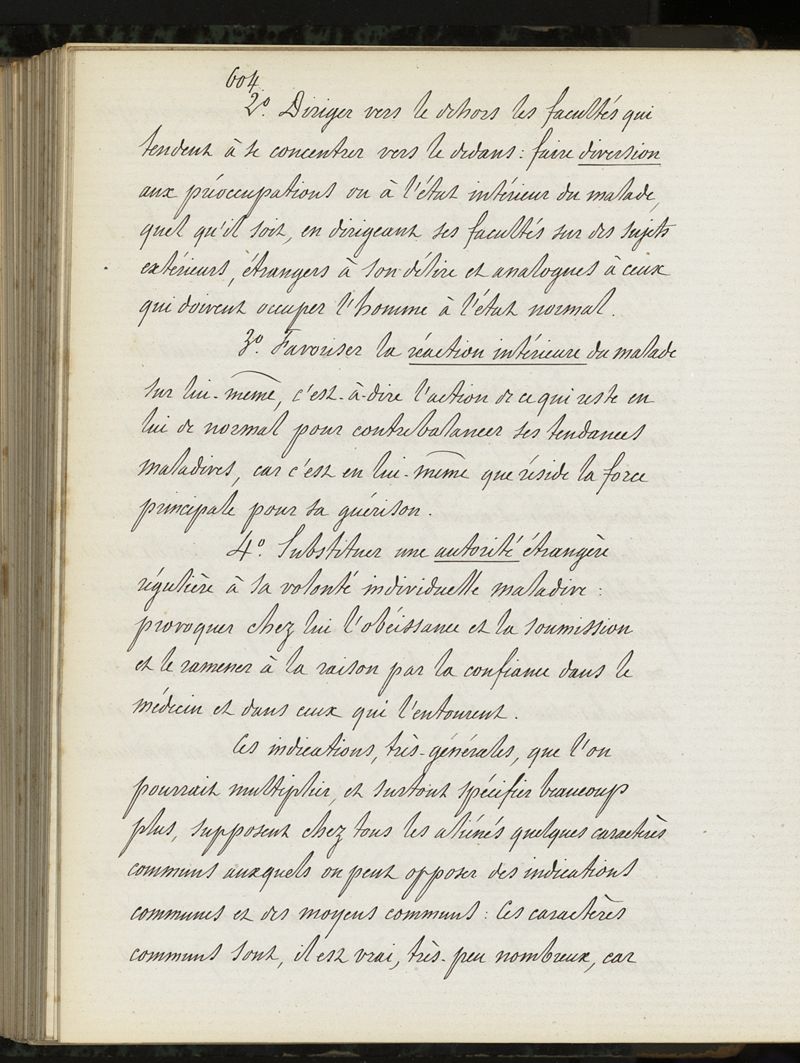 604
2º. Diriger vers le dehors les facultés qui
tendent à se concentrer vers le dedans : faire diversion
aux préoccupations ou à l'état intérieur du malade,
quel qu'il soit, en dirigeant ses facultés sur des sujets
extérieurs, étrangers à son délire et analogues à ceux
qui doivent occuper l'homme à l'état normal.
3º. Favoriser la réaction intérieure du malade
sur lui-même, c'est-à-dire l'action de ce qui reste en
lui de normal pour contrebalancer ses tendances
maladives, car c'est en lui-même que réside la force
principale pour sa guérison.
4º. Substituer une autorité étrangère
régulière à sa volonté individuelle maladive :
provoquer chez lui l'obéissance et la soumission
et le ramener à la raison par la confiance dans le
médecin et dans ceux qui l'entourent.
Ces indications, très-générales, que l'on
pourrait multiplier, et surtout spécifier beaucoup
plus, supposent chez tous les aliénés quelques caractères
communs auxquels on peut opposer des indications
communes et des moyens communs : Ces caractères
communs sont, il est vrai, très-peu nombreux, car